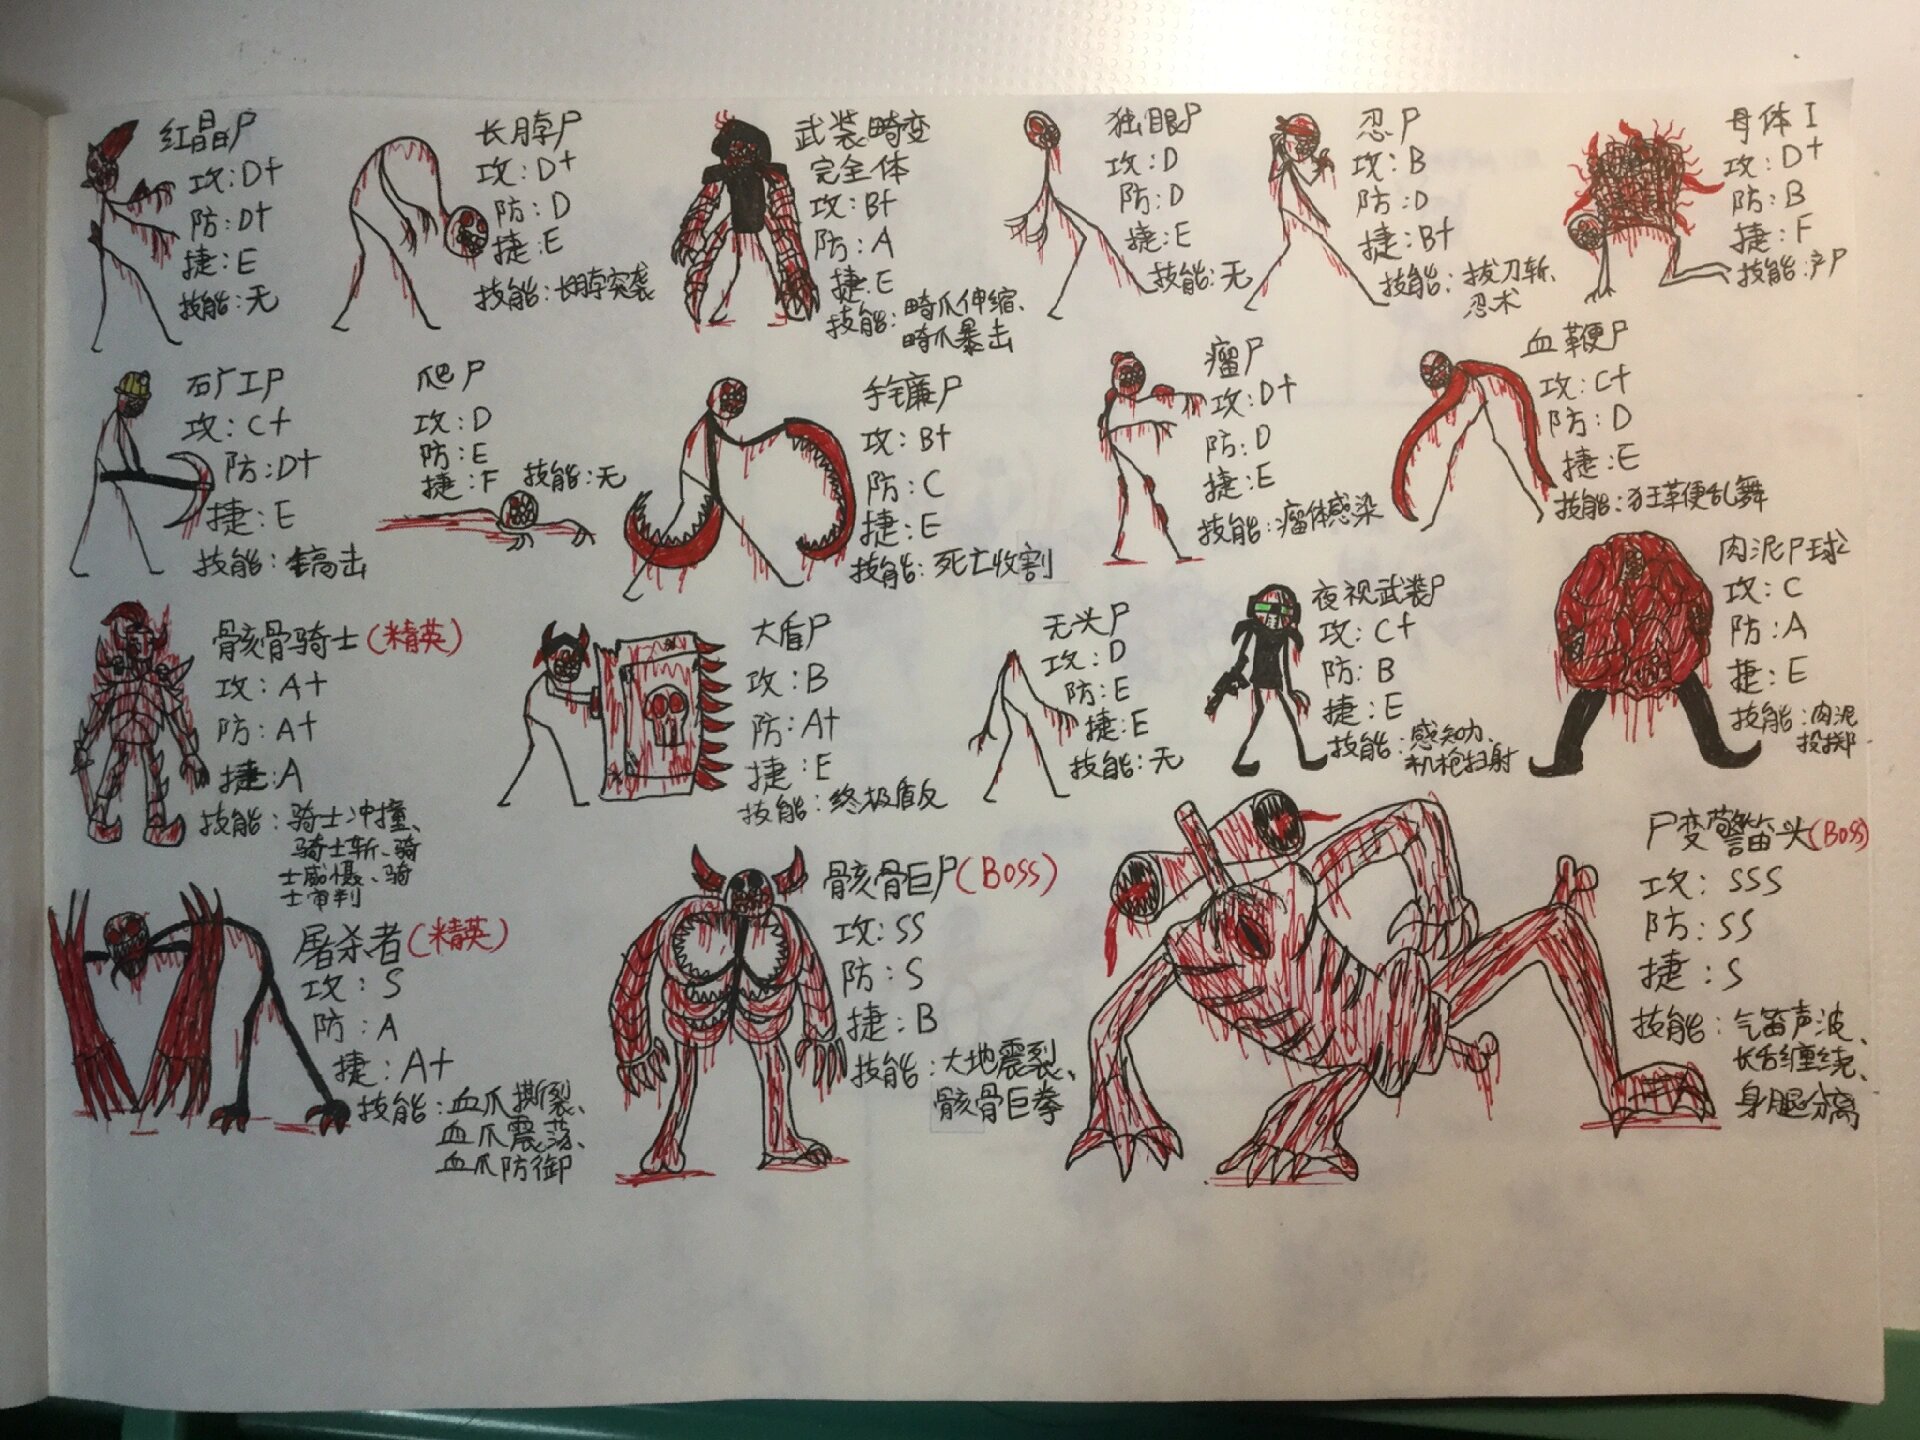 红晶尸
攻:D+
防:D+
捷:E
技能:无
长脖尸
攻:D+
防:D
捷:E
技能:长脖突袭
武装畸变
完全体
攻:B+
防:A
捷:E
技能:畸爪伸缩、
畸爪暴击
独眼尸
攻:D
防:D
捷:E
技能:无
忍尸
攻:B
防:D
捷:B+
技能:拔刀斩、
忍术
母体I
攻:D+
防:B
捷:F
技能:产尸
矿工尸
攻:C+
防:D+
捷:E
技能:镐击
爬尸
攻:D
防:E
捷:F 技能:无
手镰尸
攻:B+
防:C
捷:E
技能:死亡收割
瘤尸
攻:D+
防:D
捷:E
技能:瘤体感染
血鞭尸
攻:C+
防:D
捷:E
技能:狂鞭乱舞
骸骨骑士(精英)
攻:A+
防:A+
捷:A
技能:骑士冲撞、
骑士斩、骑
士威慑、骑
士审判
大盾尸
攻:B
防:A+
捷:E
技能:终极盾反
无头尸
攻:D
防:E
捷:E
技能:无
夜视武装尸
攻:C+
防:B
捷:E
技能:感知力、
机枪扫射
肉泥尸球
攻:C
防:A
捷:E
技能:肉泥
投掷
屠杀者(精英)
攻:S
防:A
捷:A+
技能:血爪撕裂、
血爪震荡、
血爪防御
骸骨巨尸(BOSS)
攻:SS
防:S
捷:B
技能:大地震裂、
骸骨巨拳
尸变警笛头(BOSS)
攻:SSS
防:SS
捷:S
技能:气笛声波、
长舌缠绕、
身腿分离